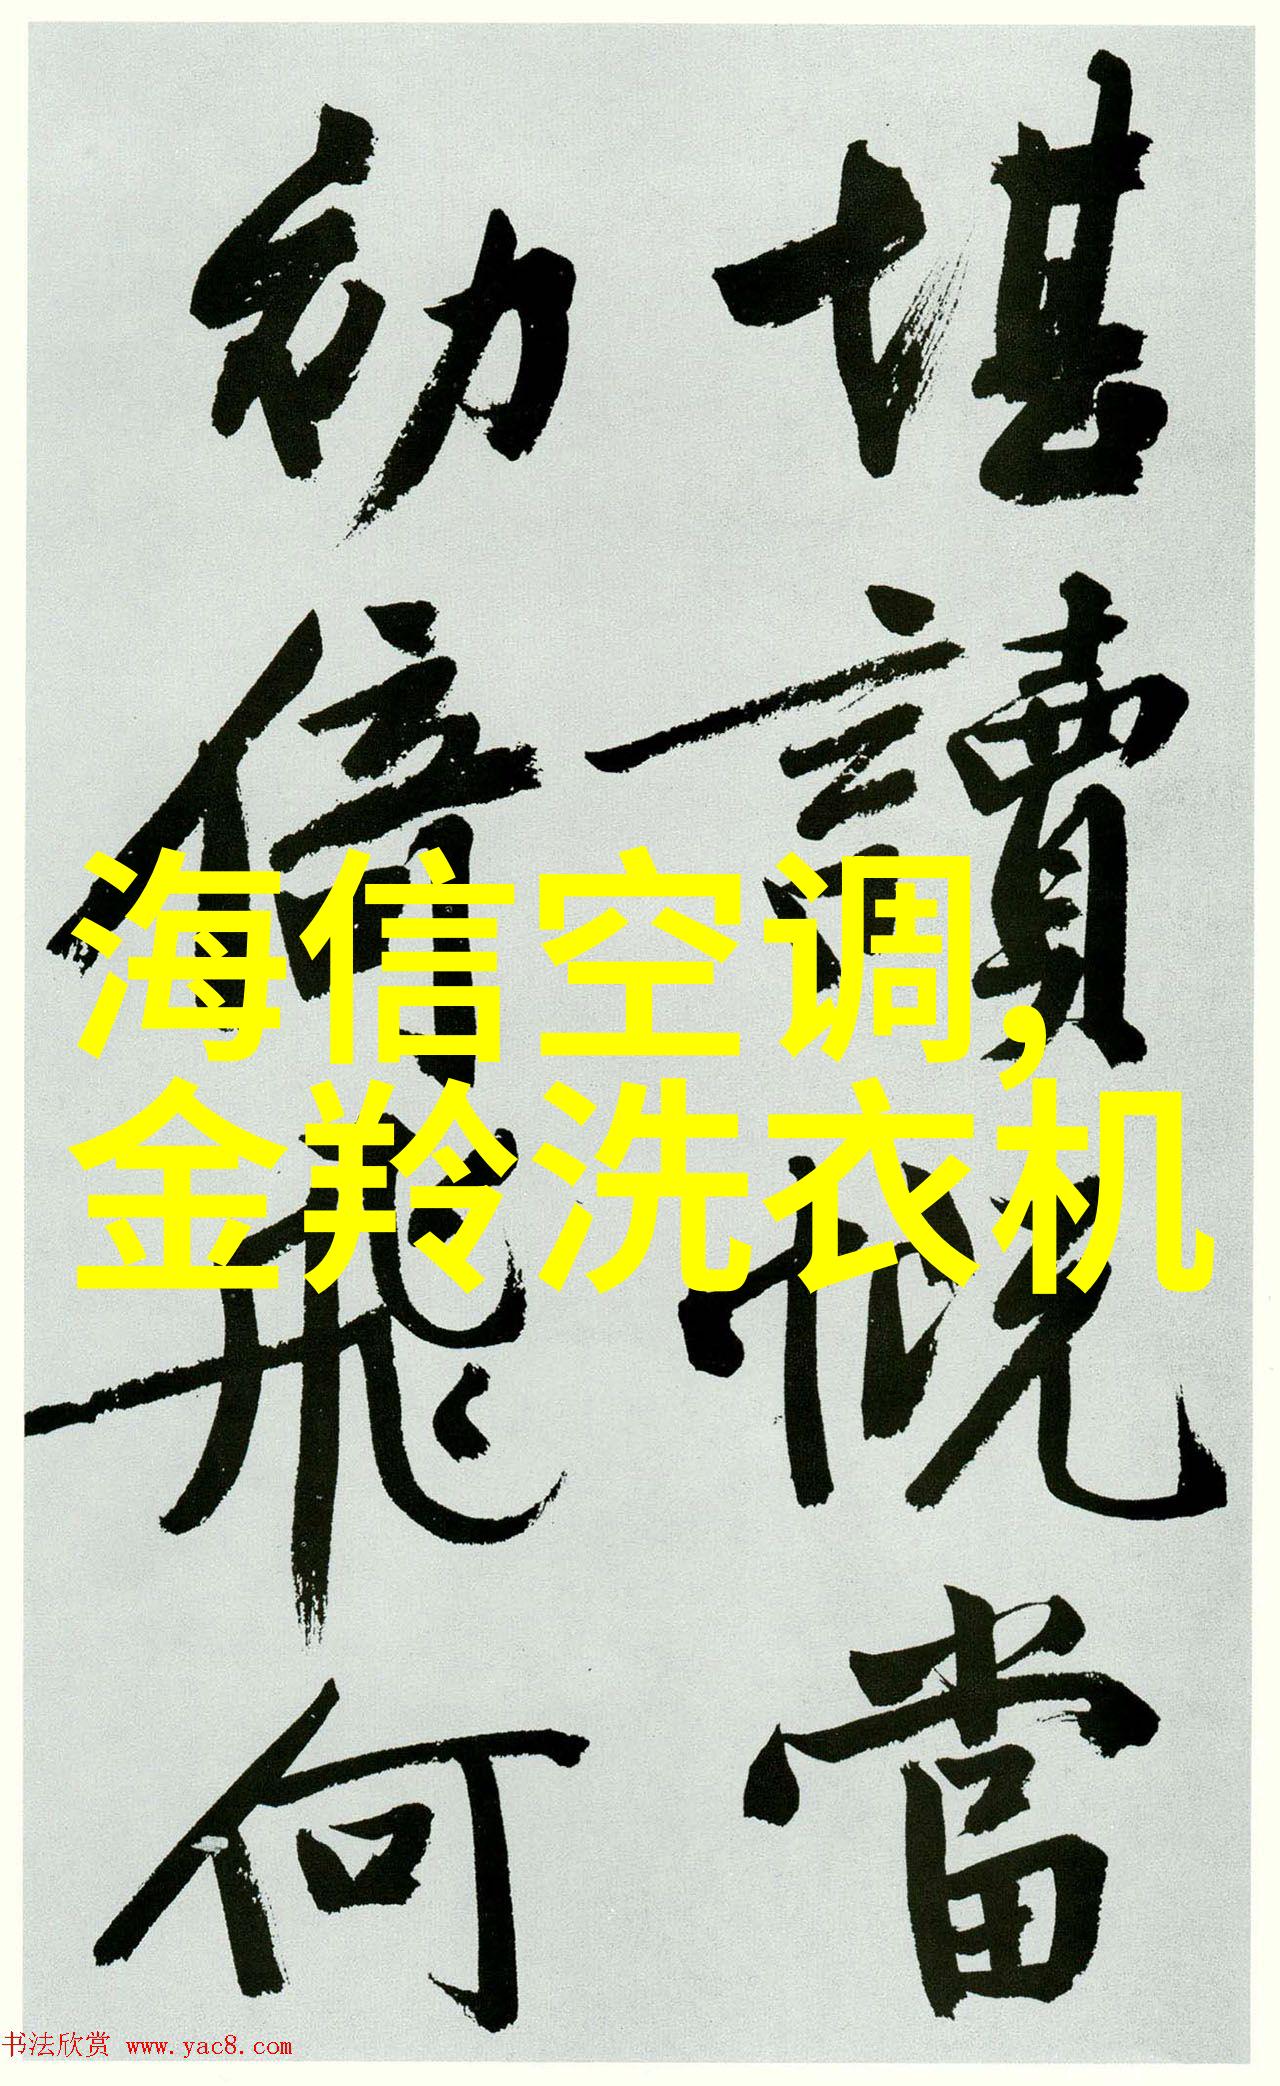 堪讀慨當
幼倚飛何
海信空调,
金羚洗衣机
书法欣赏 www.yac8.com